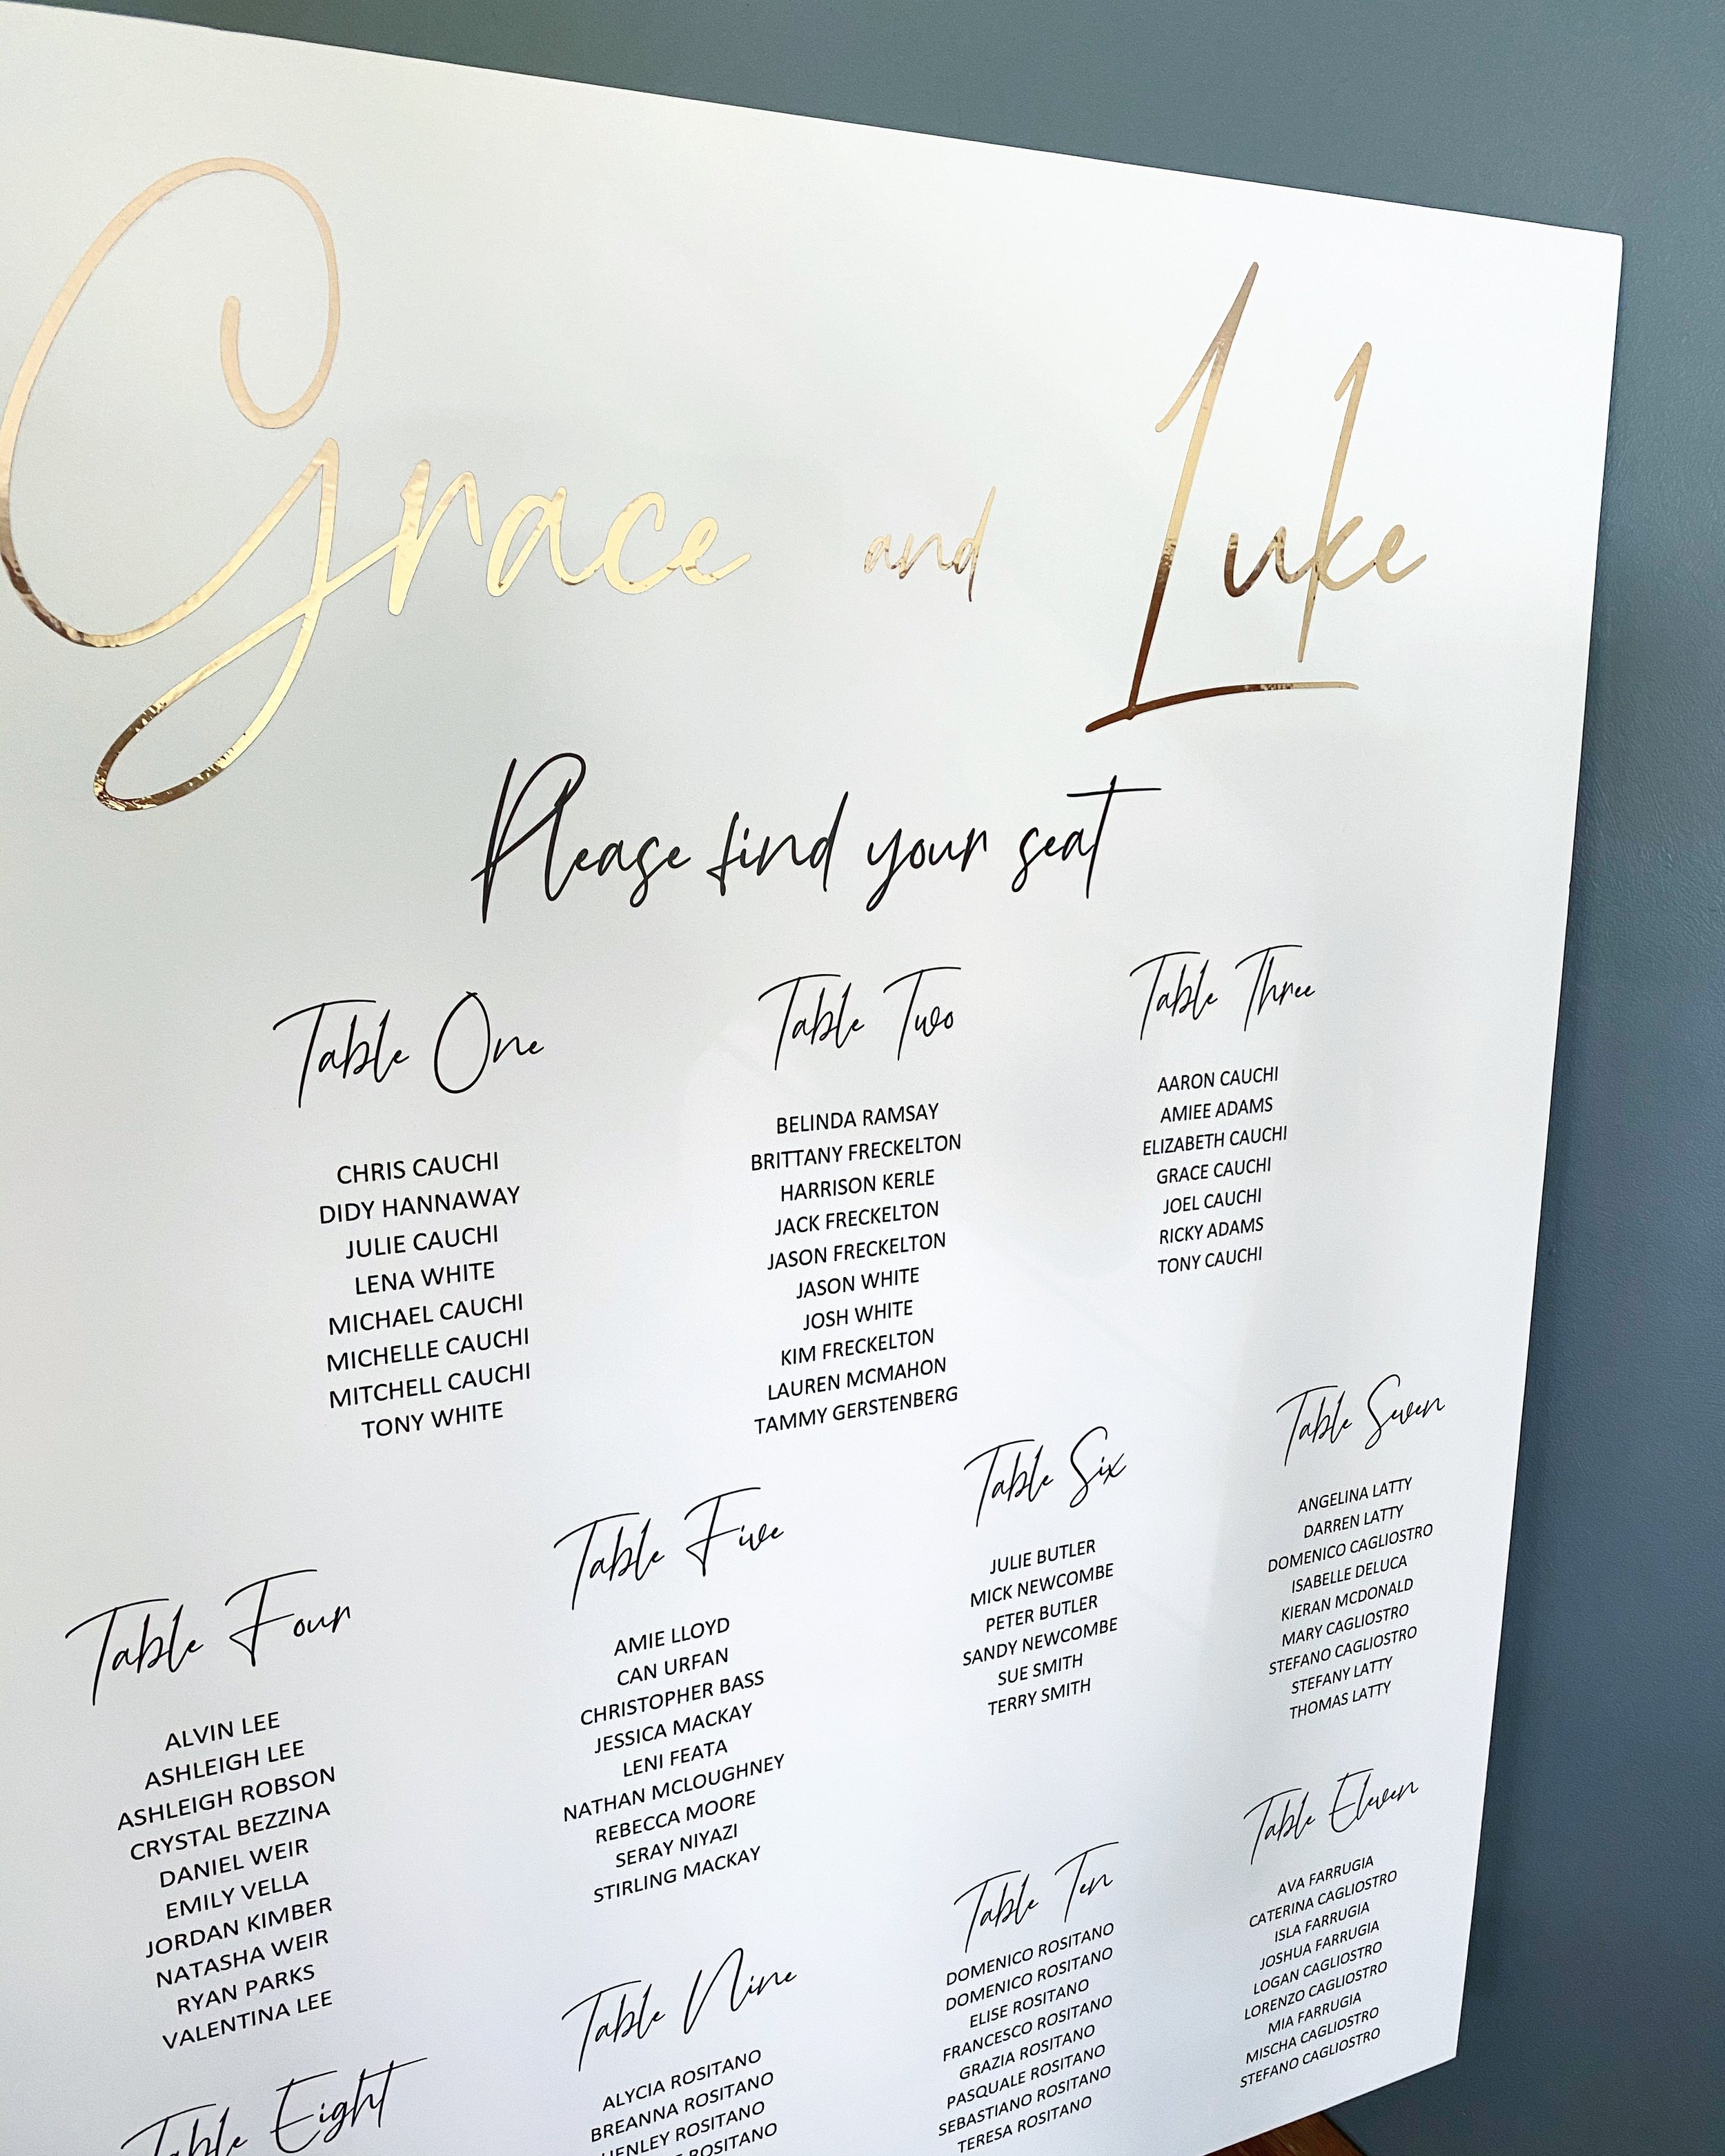 Grace and Luke
Please find your seat
Table One
CHRIS CAUCHI
DIDY HANNAWAY
JULIE CAUCHI
LENA WHITE
MICHAEL CAUCHI
MICHELLE CAUCHI
MITCHELL CAUCHI
TONY WHITE
Table Two
BELINDA RAMSAY
BRITTANY FRECKELTON
HARRISON KERLE
JACK FRECKELTON
JASON FRECKELTON
JASON WHITE
JOSH WHITE
KIM FRECKELTON
LAUREN MCMAHON
TAMMY GERSTENBERG
Table Three
AARON CAUCHI
AMIEE ADAMS
ELIZABETH CAUCHI
GRACE CAUCHI
JOEL CAUCHI
RICKY ADAMS
TONY CAUCHI
Table Four
ALVIN LEE
ASHLEIGH LEE
ASHLEIGH ROBSON
CRYSTAL BEZZINA
DANIEL WEIR
EMILY VELLA
JORDAN KIMBER
NATASHA WEIR
RYAN PARKS
VALENTINA LEE
Table Five
AMIE LLOYD
CAN URFAN
CHRISTOPHER BASS
JESSICA MACKAY
LENI FEATA
NATHAN MCLOUGHNEY
REBECCA MOORE
SERAY NIYAZI
STIRLING MACKAY
Table Six
JULIE BUTLER
MICK NEWCOMBE
PETER BUTLER
SANDY NEWCOMBE
SUE SMITH
TERRY SMITH
Table Seven
ANGELINA LATTY
DARREN LATTY
DOMENICO CAGLIOSTRO
ISABELLE DELUCA
KIERAN MCDONALD
MARY CAGLIOSTRO
STEFANO CAGLIOSTRO
STEFANY LATTY
THOMAS LATTY
Table Eight
Table Nine
ALYCIA ROSITANO
BREANNA ROSITANO
HENLEY ROSITANO
ROSITANO
Table Ten
DOMENICO ROSITANO
DOMENICO ROSITANO
ELISE ROSITANO
FRANCESCO ROSITANO
GRAZIA ROSITANO
PASQUALE ROSITANO
SEBASTIANO ROSITANO
TERESA ROSITANO
Table Eleven
AVA FARRUGIA
CATERINA CAGLIOSTRO
ISLA FARRUGIA
JOSHUA FARRUGIA
LOGAN CAGLIOSTRO
LORENZO CAGLIOSTRO
MIA FARRUGIA
MISCHA CAGLIOSTRO
STEFANO CAGLIOSTRO